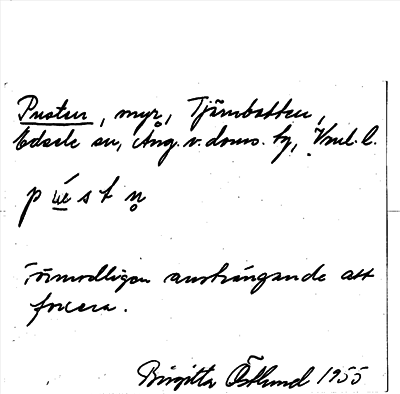 Pusten, myr, Tjärnbotten,
Edsele sn, Ång. v. doms. tg, Vnl. l.
p ú̳e s t n̥
Förmodligen ansträngande att
forcera.
Birgitta Östlund 1955